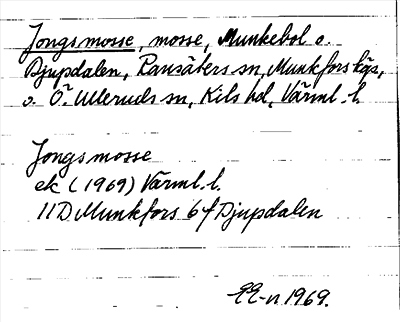 Jongsmosse, mosse, Munkebol o.
Djupdalen, Ransäters sn, Munkfors köp,
o. Ö. Ulleruds sn, Kils hd, Värml. l.
Jongsmosse
ek (1969) Värml. l.
11D Munkfors 6f Djupdalen
1969.